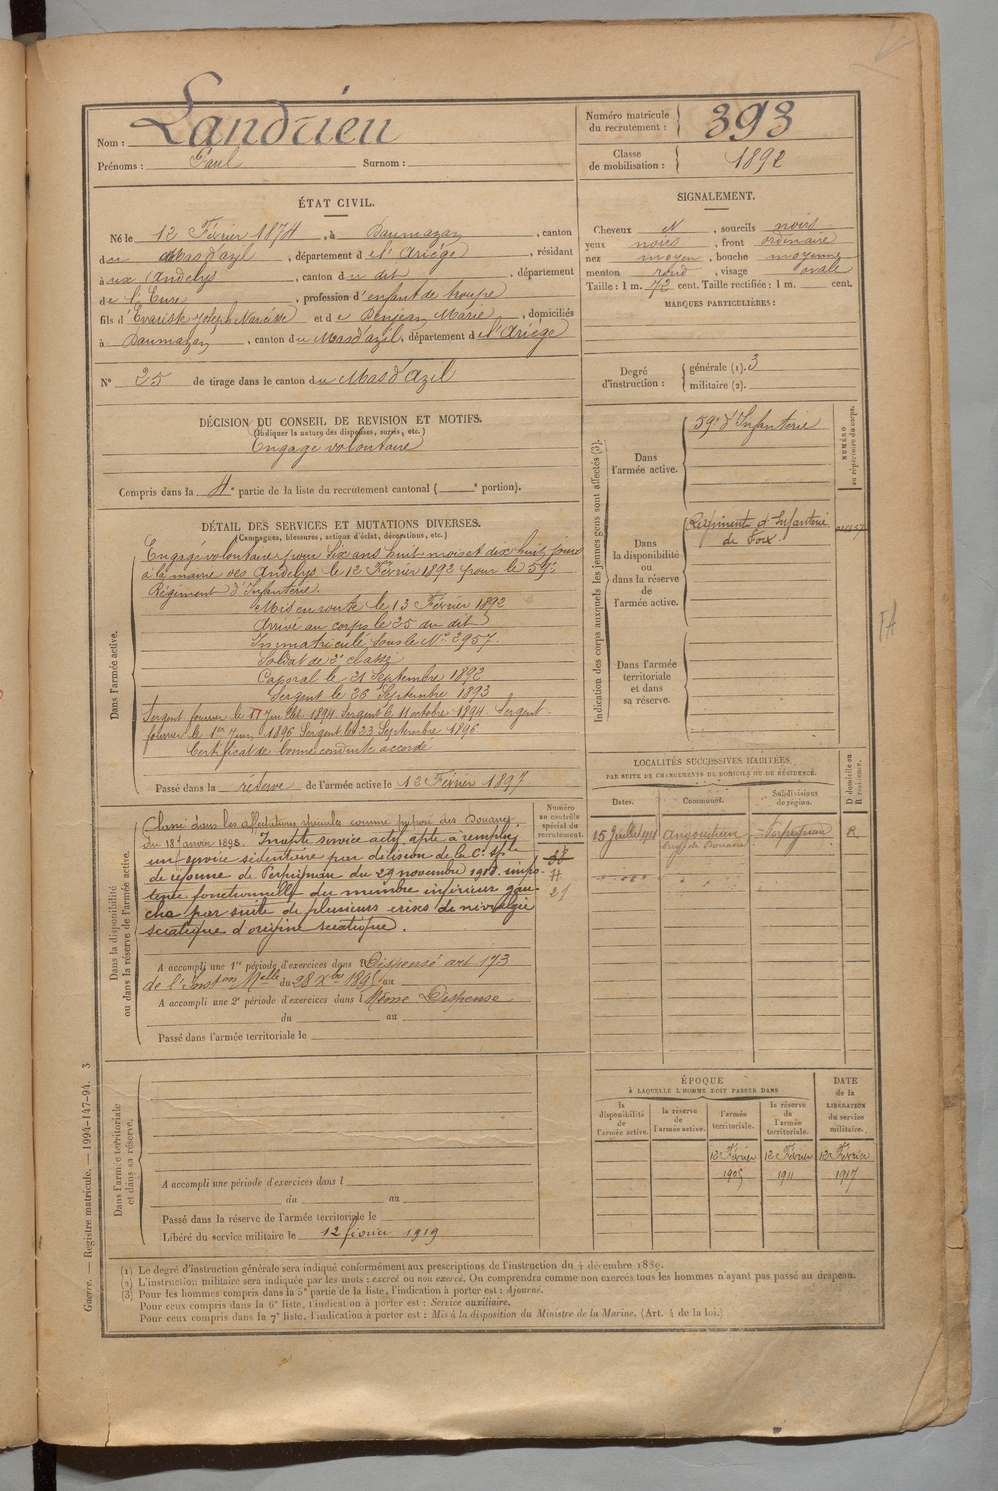 Nom : Landrieu
Prénoms : Paul Surnom :
Numéro matricule
du recrutement : 393
Classe
de mobilisation : 1892
ÉTAT CIVIL.
Né le 12 Février 1874, à Daumazan, canton
du Mas d'azil, département de l'Ariège, résidant
aux Andelys, canton du dit, département
de l'Eure, profession d'enfant de troupe
fils d'Evariste Joseph Narcisse et de Marie, domiciliés
à Daumazan, canton du Mas d'azil, département de l'Ariège
N° 25 de tirage dans le canton du Mas d'Azil
SIGNALEMENT.
Cheveux et, sourcils noirs
yeux noirs, front ordinaire
nez moyen, bouche moyenne
menton rond, visage ovale
Taille : 1 m. 72 cent. Taille rectifiée : 1 m. cent.
MARQUES PARTICULIÈRES :
Degré
d'instruction :
générale (1). 3
militaire (2).
DÉCISION DU CONSEIL DE REVISION ET MOTIFS.
(Indiquer la nature des dispenses, sursis, etc.)
Engagé volontaire
Compris dans la 4e partie de la liste du recrutement cantonal ( e portion).
DÉTAIL DES SERVICES ET MUTATIONS DIVERSES.
(Campagnes, blessures, actions d'éclat, décorations, etc.)
Dans l'armée active.
Engagé volontaire pour six ans huit mois et dix huit jours
à la mairie des Andelys le 12 Février 1892 pour le 59e
Régiment d'Infanterie.
Mis en route le 13 Février 1892
Arrivé au corps le 25 du dit
Immatriculé sous le No 2957.
Soldat de 2e classe
Caporal le 21 Septembre 1892
Sergent le 26 Septembre 1893
Sergent fourrier le 17 Juillet 1894. Sergent le 11 octobre 1894. Sergent
fourrier le 1er 1896 Sergent le 23 Septembre 1896
Certificat de bonne conduite accordé
Passé dans la réserve de l'armée active le 12 Février 1897
Indication des corps auxquels les jeunes gens sont affectés (3).
NUMÉRO
au répertoire du corps.
Dans
l'armée active.
59e d'Infanterie
Dans
la disponibilité
ou
dans la réserve
de
l'armée active.
Régiment d'Infanterie
de Foix.
Dans l'armée
territoriale
et dans
sa réserve.
FA
LOCALITÉS SUCCESSIVES HABITÉES
PAR SUITE DE CHANGEMENTS DE DOMICILE OU DE RÉSIDENCE.
Dates.
Communes.
Subdivisions
de région.
D domicile ou
R résidence.
15 Juillet 1911 Angoustrine Perpignan R
Dans la disponibilité
ou dans la réserve de l'armée active.
Numéro
au contrôle
spécial du
recrutement.
Classé dans les affectations spéciales comme préposé des Douanes
du 18 Janvier 1898. Inapte service actif, apte à remplir
un service sédentaire par décision de la Con sple
de réforme de Perpignan du 29 novembre impo-
tence fonctionnelle du membre inférieur gau-
che par suite de plusieurs crises de névralgie
sciatique d'origine sciatique.
A accompli une 1re période d'exercices dans l Dispensé art 173
de l'Inston Melle du 28 Xbre 1895 au
A accompli une 2e période d'exercices dans l Même Dispense
du au
Passé dans l'armée territoriale le
Dans l'armée territoriale
et dans sa réserve.
A accompli une période d'exercices dans l
du au
Passé dans la réserve de l'armée territoriale le
Libéré du service militaire le 12 février 1919
ÉPOQUE
À LAQUELLE L'HOMME DOIT PASSER DANS
DATE
de la
LIBÉRATION
du service
militaire.
la
disponibilité
de
l'armée active.
la réserve
de
l'armée active.
l'armée
territoriale.
la réserve
de
l'armée
territoriale.
12 Février 12 Février 12 Février
1905 1911 1917
(1) Le degré d'instruction générale sera indiqué conformément aux prescriptions de l'instruction du 4 décembre 1889.
(2) L'instruction militaire sera indiquée par les mots : exercé ou non exercé. On comprendra comme non exercés tous les hommes n'ayant pas passé au drapeau.
(3) Pour les hommes compris dans la 5e partie de la liste, l'indication à porter est : Ajourné.
Pour ceux compris dans la 6e liste, l'indication à porter est : Service auxiliaire.
Pour ceux compris dans la 7e liste, l'indication à porter est : Mis à la disposition du Ministre de la Marine. (Art. 4 de la loi.)
Guerre. — Registre matricule. — 1994-147-94. 3